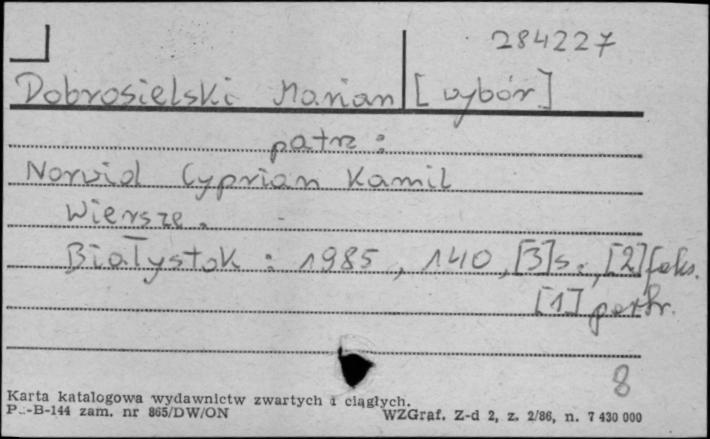 284227
Dobrosielski Marian [wybór]
patrz:
Norwid Cyprian Kamil
Wiersze.
Białystok: 1985, 140, [3]s., [2] faks.
[1] portr.
8
Karta katalogowa wydawnictw zwartych i ciągłych.
Pu-B-144 zam. nr 865/DW/ON WZGraf. Z-d 2, z. 2/86, n. 7 430 000